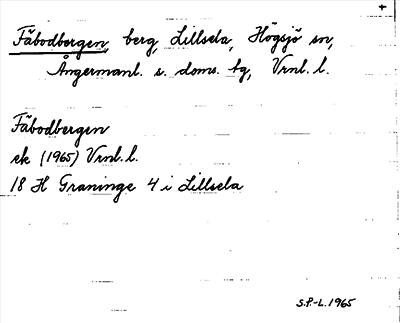 Fäbodbergen, berg, Lillsela, Högsjö sn,
Ångermanl. s. doms. tg, Vrnl. l.
Fäbodbergen
ek (1965) Vrnl. l.
18 H Graninge 4 i Lillsela
S.P-L. 1965